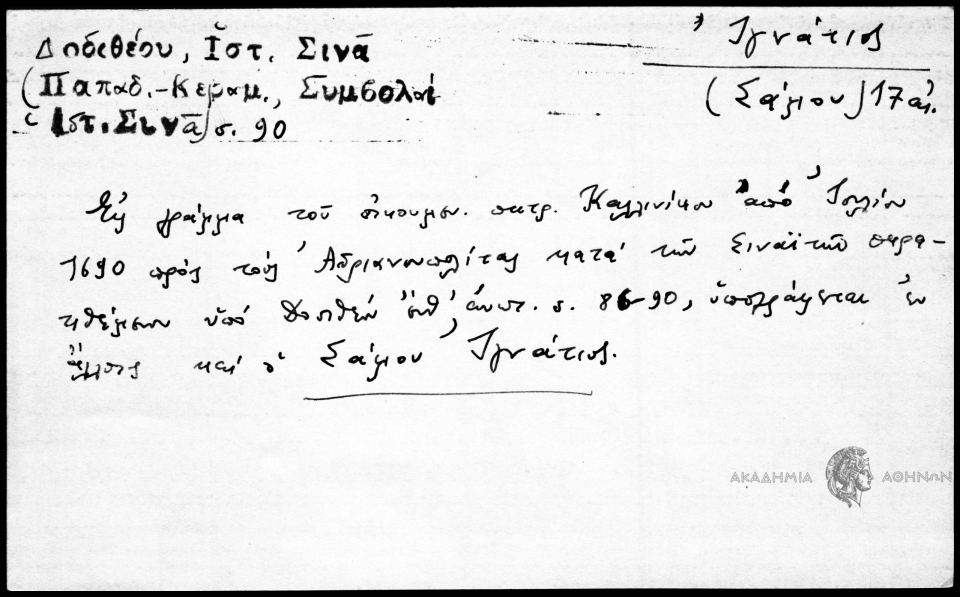 Δοσιθέου, Ἱστ. Σινᾶ
(Παπαδ.-Κεραμ., Συμβολαί
Ἱστ. Σινᾶ) σ. 90
Ἰγνάτιος
(Σάμου) 17 αἰ.
Εἰς γράμμα τοῦ οἰκουμεν. πατρ. Καλλινίκου ἀπό Ἰουλίου
1690 πρός τούς Ἀδριανουπολίτας κατά τῶν Σιναϊτῶν παρα-
τιθέμενον ὑπό Δοσιθέου ἔνθ' ἀνωτ. σ. 86-90, ὑπογράφεται ἐν
ἄλλοις καί ὁ Σάμου Ἰγνάτιος.
ΑΚΑΔΗΜΙΑ ΑΘΗΝΩΝ